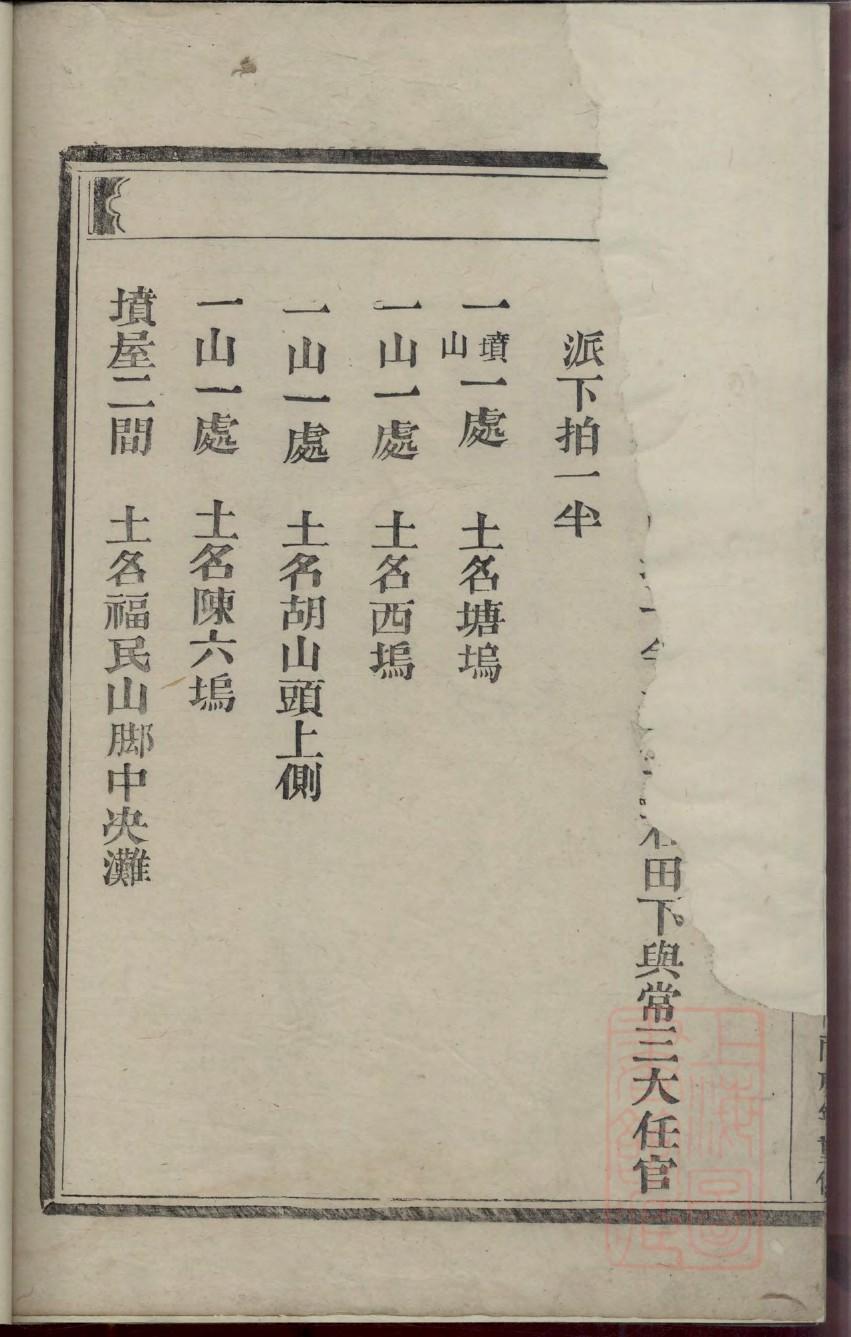 田下與常三大任官
派下拍一半
一墳山一處　土名塘塢
一山一處　土名西塢
一山一處　土名胡山頭上側
一山一處　土名陳六塢
墳屋二間　土名福民山脚中央灘